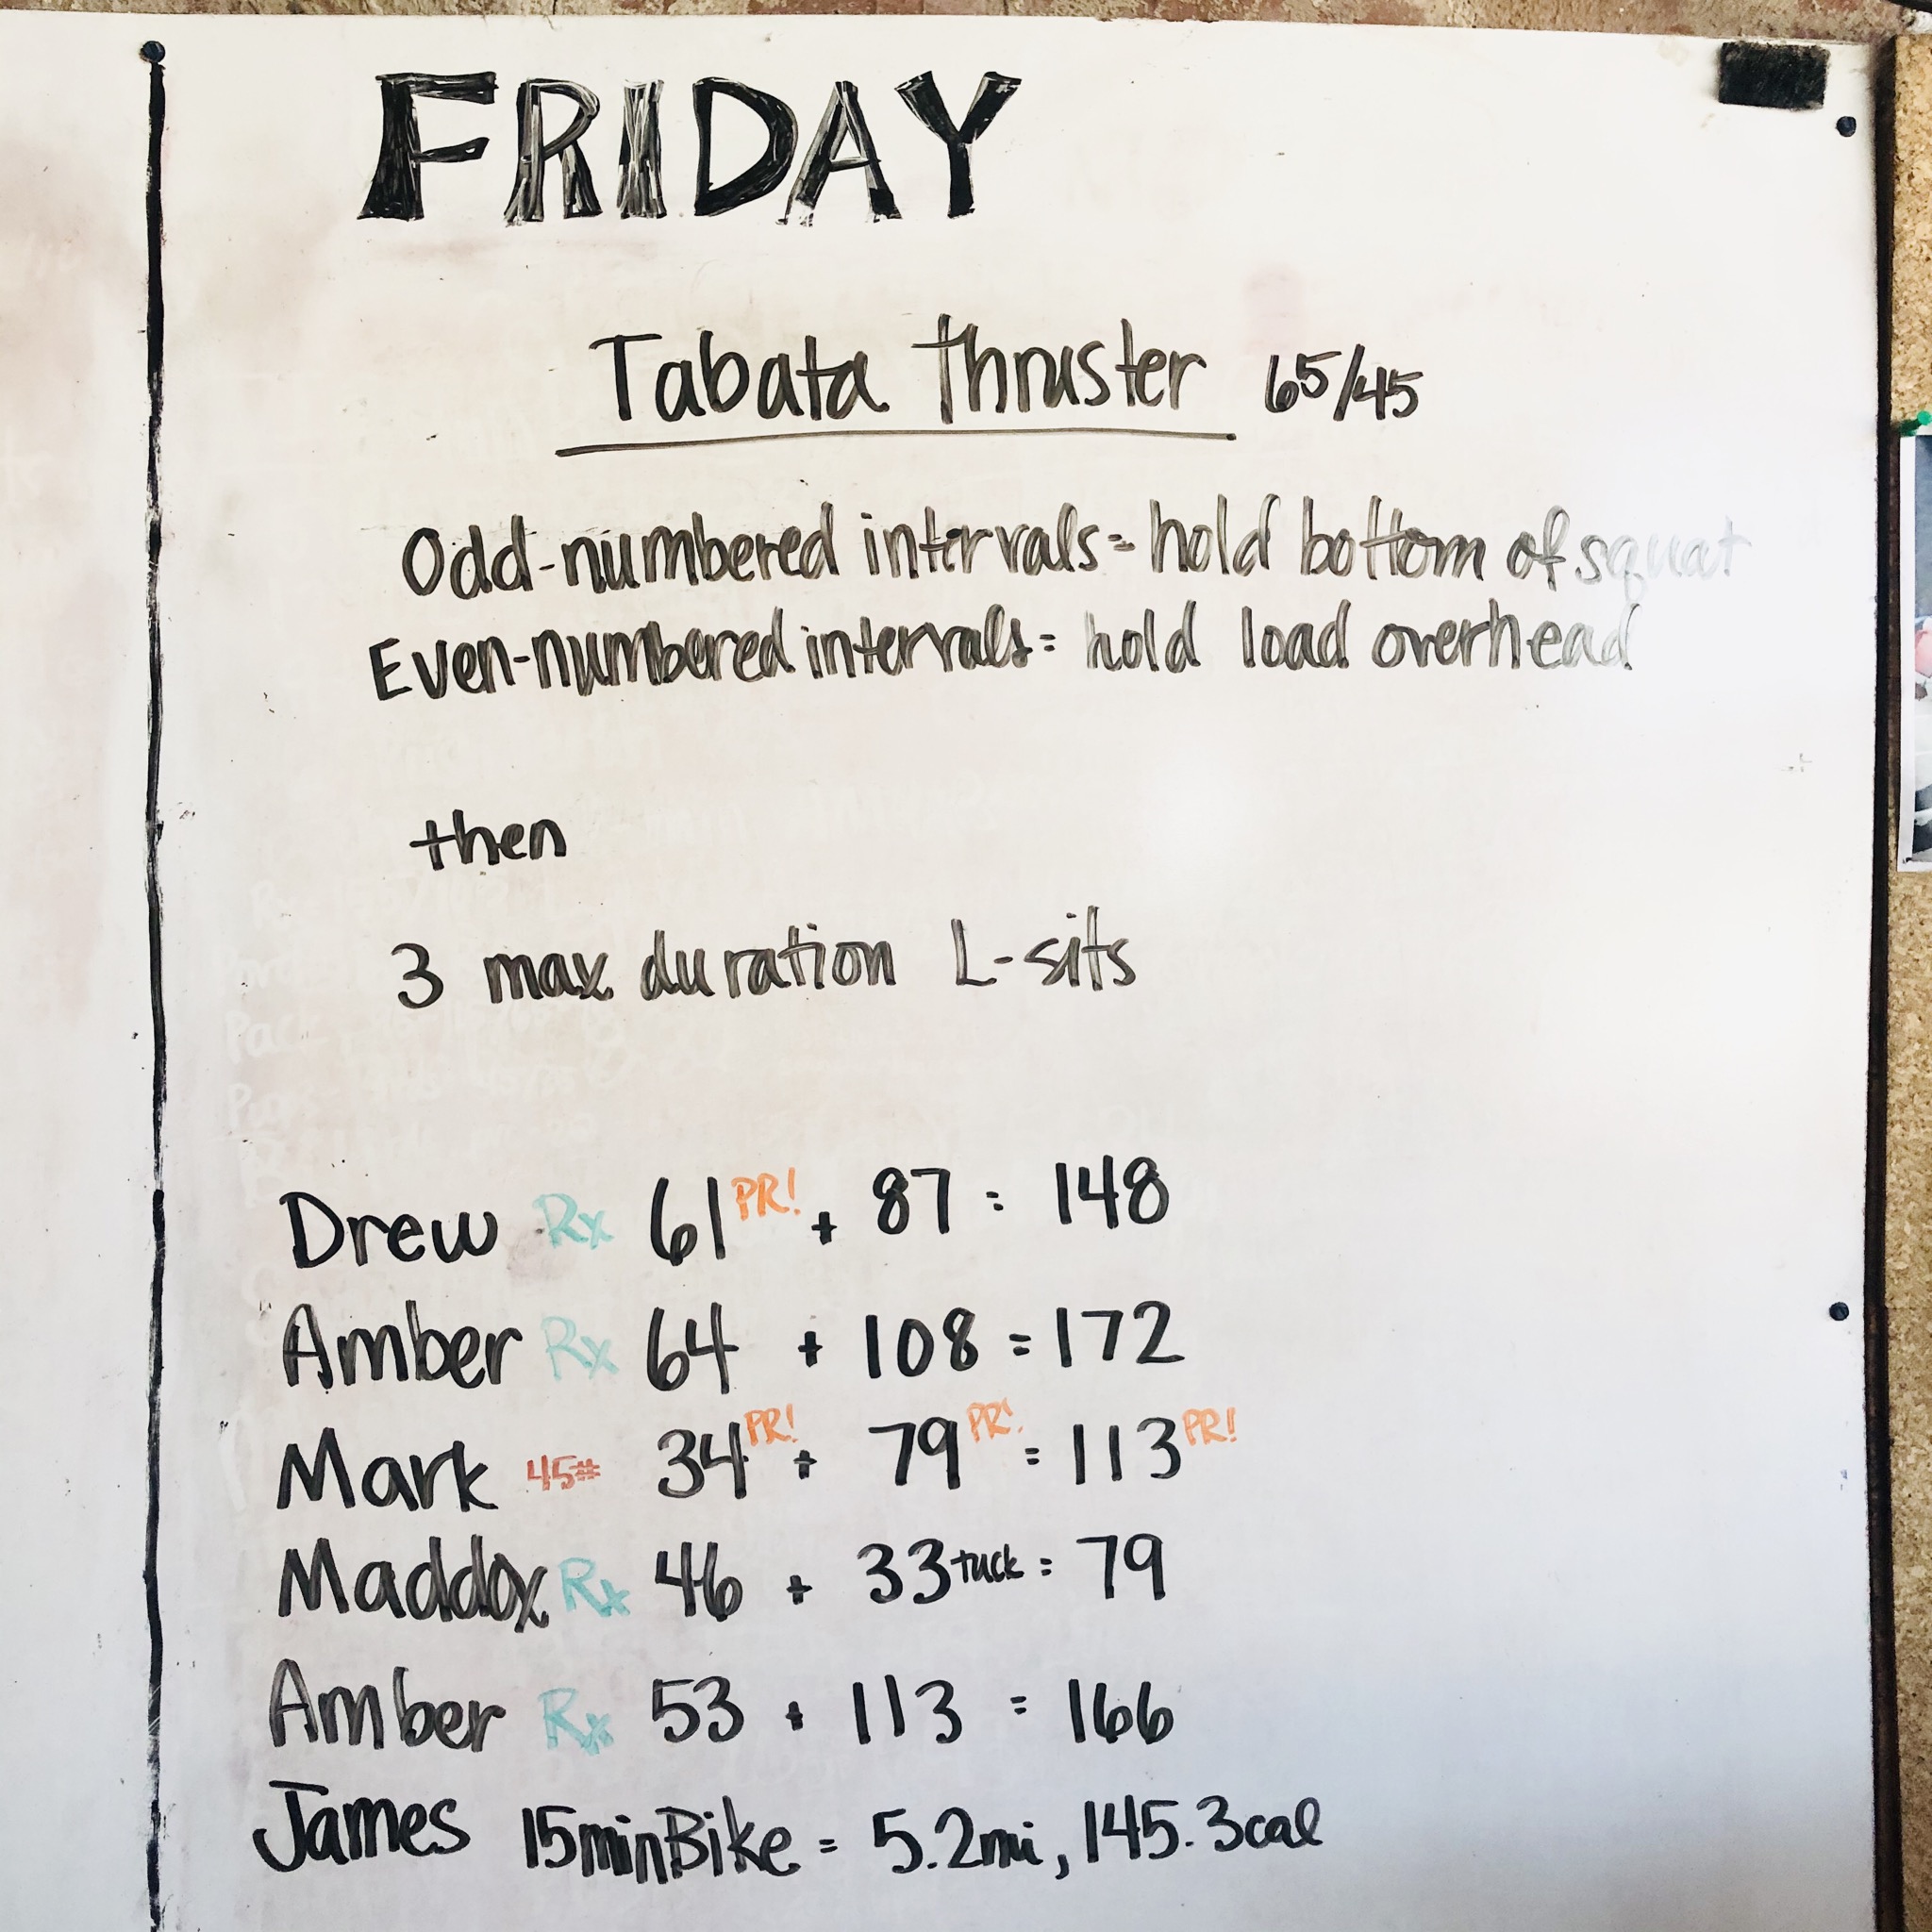 FRIDAY
Tabata Thruster 65/45
Odd-numbered intervals = hold bottom of squat
Even-numbered intervals = hold load overhead
then
3 max duration L-sits
Drew Rx 61 PR! + 87 = 148
Amber Rx 64 + 108 = 172
Mark 45# 34 PR! + 79 PR! = 113 PR!
Maddox Rx 46 + 33 tuck = 79
Amber Rx 53 + 113 = 166
James 15min Bike = 5.2mi, 145.3cal